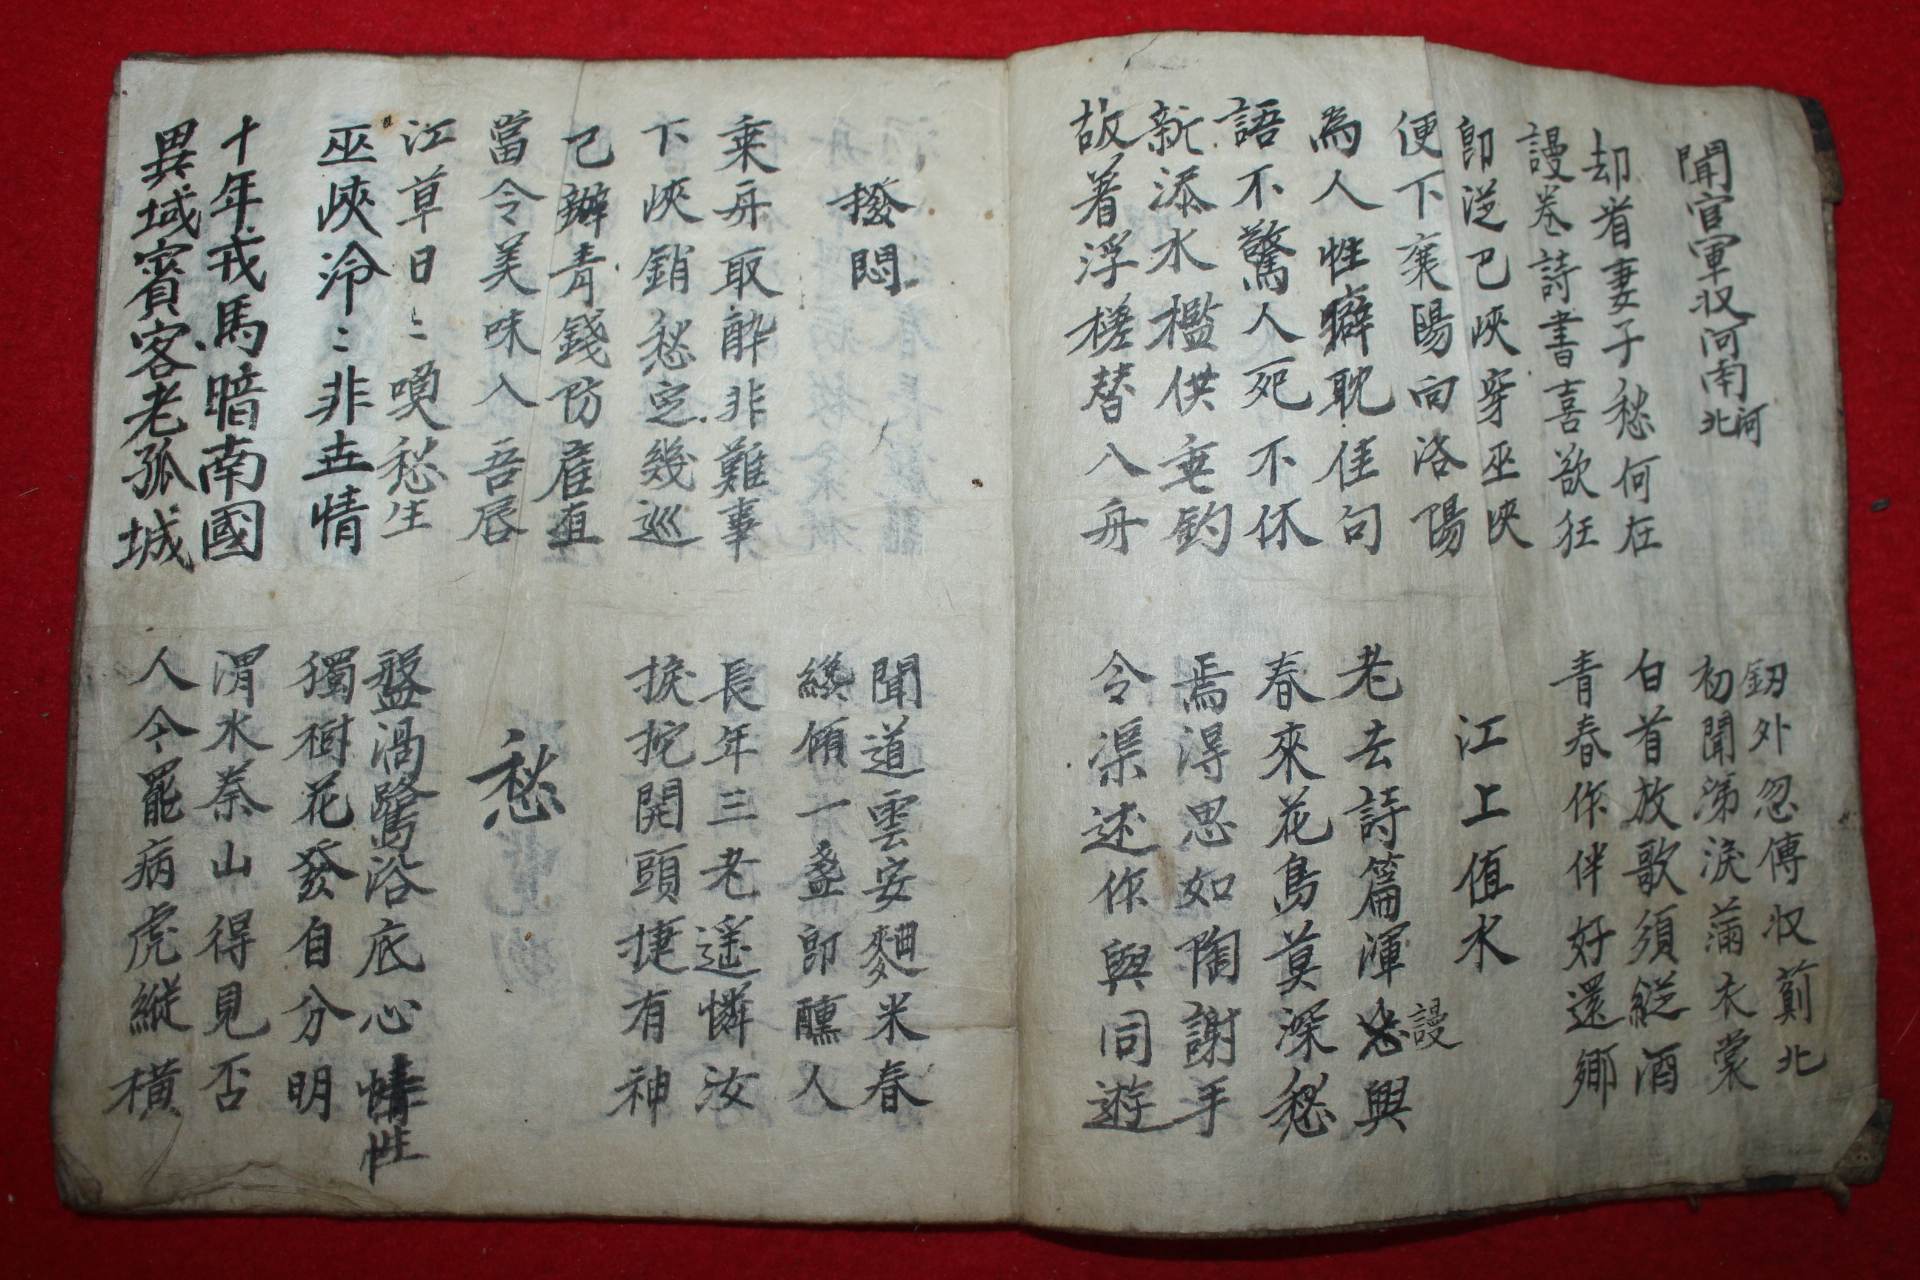 聞官軍収河南河北
釼外忽傳収薊北
初聞涕淚滿衣裳
却看妻子愁何在
謾卷詩書喜欲狂
白首放歌須縱酒
青春作伴好還鄉
即從巴峽穿巫峽
便下襄陽向洛陽
江上值水
為人性癖耽佳句
語不驚人死不休
老去詩篇渾謾興
春來花鳥莫深愁
新添水檻供垂釣
故着浮槎替入舟
焉得思如陶謝手
令渠述作與同遊
撥悶
聞道雲安麯米春
纔傾一盞即醺人
乗舟取醉非難事
下峽銷愁定幾巡
長年三老遙憐汝
捩拕開頭捷有神
已辦青錢防雇直
當令美味入吾唇
愁
江草日〻喚愁生
巫峽泠〻非世情
盤渦鷺浴底心性
獨樹花發自分明
十年戎馬暗南國
異域賓客老孤城
渭水秦山得見否
人今罷病虎縱橫